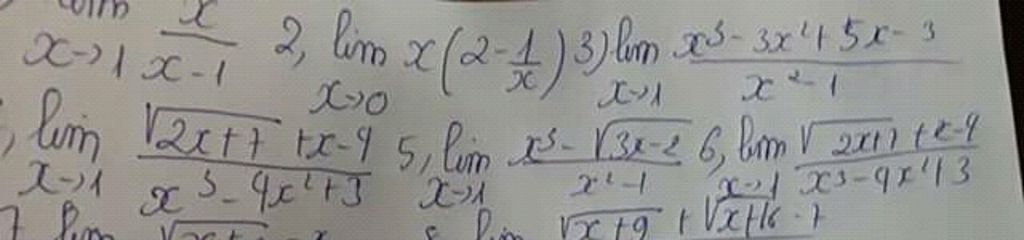 lim x→1 x/(x-1) 2, lim x→0 x(2-1/x) 3) lim x→1 (x³-3x²+5x-3)/(x²-1)
, lim x→1 (√(2x+7)+x-4)/(x³-4x²+3) 5, lim x→1 (x³-√(3x-2))/(x²-1) 6, lim x→1 (√(2x+7)+x-4)/(x³-4x²+3)
7 lim √ lim √(x+9)+√(x+16)-7